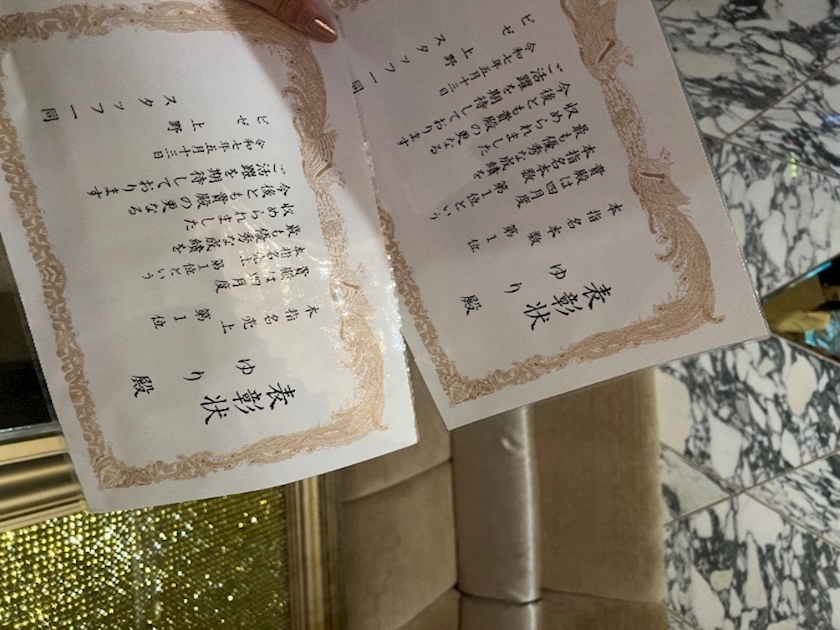 表彰状
ゆり 殿
本指名本数 第1位
貴殿は四月度
本指名本数 第1位という
最も優秀な成績を
収められました
今後とも貴殿の更なる
ご活躍を期待しております
令和七年五月十三日
ビゼ 上野
スタッフ一同
表彰状
ゆり 殿
本指名売上 第1位
貴殿は四月度
本指名売上 第1位という
最も優秀な成績を
収められました
今後とも貴殿の更なる
ご活躍を期待しております
令和七年五月十三日
ビゼ 上野
スタッフ一同